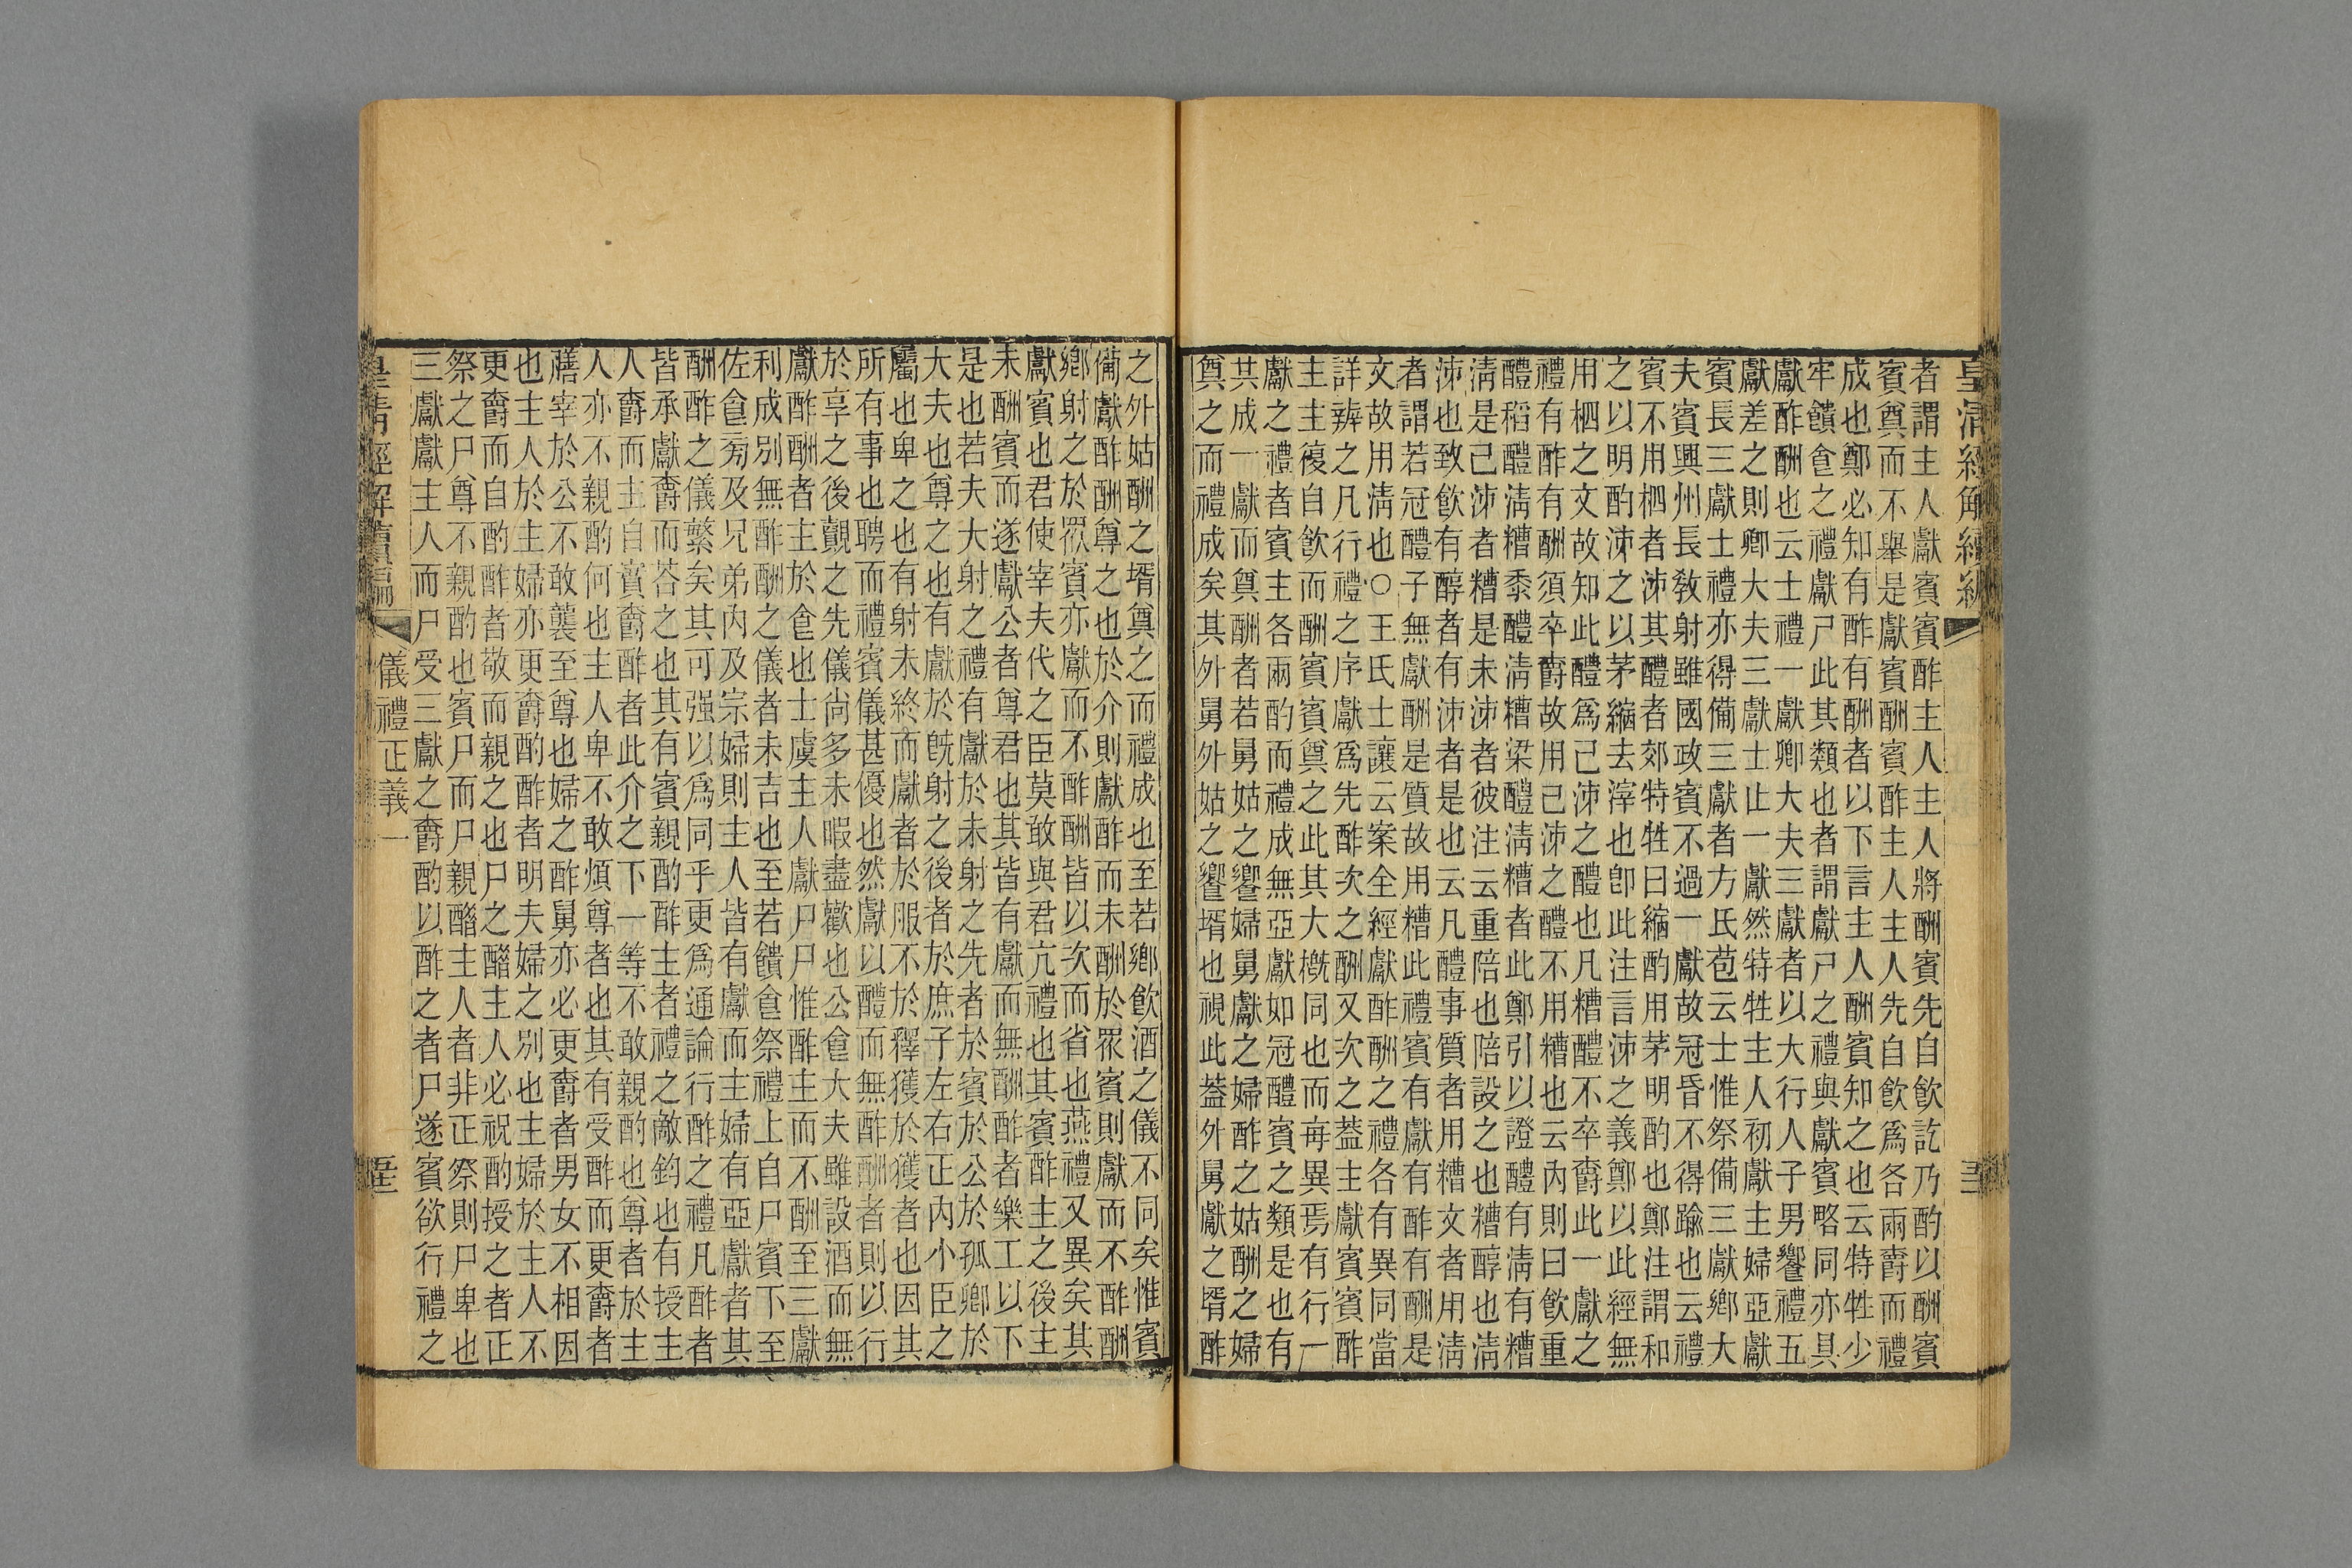 皇清經解續編
者謂主人獻賓賓酢主人主人將酬賓先自飲訖乃酌以酬賓
賓奠而不舉是獻賓酬賓酢主人主人先自飲爲各兩爵而禮
成也鄭必知有酢有酬者以下言主人酬賓知之也云特牲少
牢饋食之禮獻尸此其類也者謂獻尸之禮與獻賓略同亦具
獻酢酬也云士禮一獻卿大夫三獻者以大行人子男饗禮五
獻差之則卿大夫三獻士止一獻然特牲主人初獻主婦亞獻
賓長三獻士禮亦得備三獻者方氏苞云士惟祭備三獻鄉大
夫賓興州長敎射雖國政賓不過一獻故冠昏不得踰也云禮
賓不用柶者泲其醴者郊特牲曰縮酌用茅明酌也鄭注謂和
之以明酌泲之以茅縮去滓也卽此注言泲之義鄭以此經無
用柶之文故知此醴爲已泲之醴也凡糟醴不卒爵此一獻之
禮有酢有酬須卒爵故用已泲之醴不用糟也云內則曰飲重
醴稻醴淸糟黍醴淸糟梁醴淸糟者此鄭引以證醴有淸有糟
淸是已泲者糟是未泲者彼注云重陪也陪設之也糟醇也淸
泲也致飲有醇者有泲者是也云凡醴事質者用糟文者用淸
者謂若冠醴子無獻酬是質故用糟此禮賓有獻有酢有酬是
文故用淸也○王氏士讓云案全經獻酢酬之禮各有異同當
詳辨之凡行禮之序獻爲先酢次之酬又次之蓋主獻賓賓酢
主主復自飲而酬賓賓奠之此其大槪同也而每異焉有行一
獻之禮者賓主各兩酌而禮成無亞獻如冠醴賓之類是也有
共成一獻而奠酬者若舅姑之饗婦舅獻之婦酢之姑酬之婦
奠之而禮成矣其外舅外姑之饗壻也視此蓋外舅獻之壻酢
之外姑酬之壻奠之而禮成也至若鄉飲酒之儀不同矣惟賓
備獻酢酬尊之也於介則獻酢而未酬於眾賓則獻而不酢酬
鄉射之於眾賓亦獻而不酢酬皆以次而省也燕禮又異矣其
獻賓也君使宰夫代之臣莫敢與君亢禮也其賓酢主之後主
未酬賓而遂獻公者尊君也其皆有獻而無酬酢者樂工以下
是也若夫大射之禮有獻於未射之先者於賓於公於孤卿於
大夫也尊之也有獻於旣射之後者於庶子左右正內小臣之
屬也卑之也有射未終而獻者於服不於釋獲於獲者也因其
所有事也聘而禮賓儀甚優也然獻以醴而無酢酬者則以行
於享之後覿之先儀尙多未暇盡歡也公食大夫雖設酒而無
獻酢酬者主於食也士虞主人獻尸尸惟酢主而不酬至三獻
利成別無酢酬之儀者未吉也至若饋食祭禮上自尸賓下至
佐食㫄及兄弟內及宗婦則主人皆有獻而主婦有亞獻者其
酬酢之儀繁矣其可强以爲同乎更爲通論行酢之禮凡酢者
皆承獻爵而荅之也其有賓親酌酢主者禮之敵鈞也有授主
人爵而主自賓爵酢者此介之下一等不敢親酌也尊者於主
人亦不親酌何也主人卑不敢煩尊者也其有受酢而更爵者
膳宰於公不敢襲至尊也婦之酢舅亦必更爵者男女不相因
也主人於主婦亦更爵酌酢者明夫婦之別也主婦於主人不
更爵而自酌酢者敬而親之也尸之醋主人必祝酌授之者正
祭之尸尊不親酌也賓尸而尸親醋主人者非正祭則尸卑也
三獻獻主人而尸受三獻之爵酌以酢之者尸遂賓欲行禮之
皇清經解續編 儀禮正義一